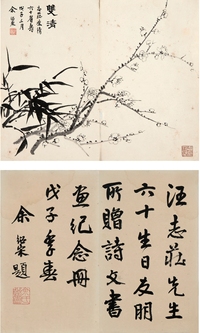 雙清
戊子三月
汪志莊先生
六十生日友朋
所贈詩文書
畫紀念冊
戊子季春
余 題